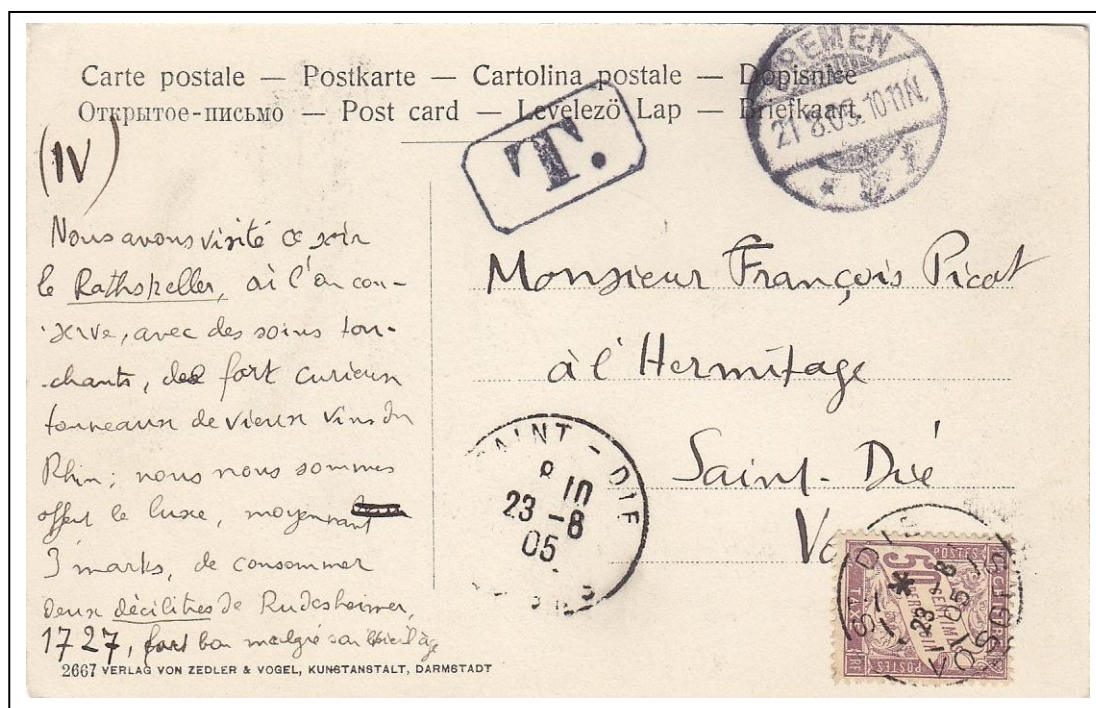 Carte postale — Postkarte — Cartolina postale — Dopisnice
Открытое-письмо — Post card — Levelezö Lap — Briefkaart.
BREMEN
21 8.05. 10-11N.
* 1
T.
(IV)
Nous avons visité ce soir
le Rathskeller, où l'on con-
serve, avec des soins tou-
chants, de fort curieux
tonneaux de vieux vins du
Rhin; nous nous sommes
offert le luxe, moyennant
3 marks, de consommer
deux décilitres de Rudesheimer,
1727, fort bon malgré son
Monsieur François Picot
à l'Hermitage
Saint-Dié
SAINT-DIE
8 10
23-8
05
VOSGES
ST DIE
23 8
05
VOSGES
POSTES
50
CENTIMES
À PERCEVOIR
TAXE
POSTES
2667 VERLAG VON ZEDLER & VOGEL, KUNSTANSTALT, DARMSTADT